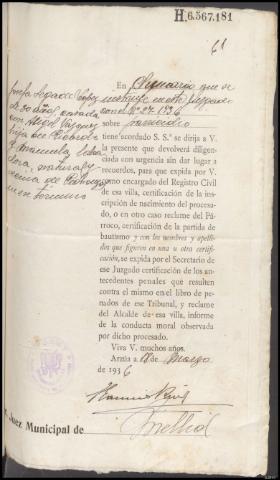 H.6.567.181
61
En sumario que se
instruye en este Juzgado
con el Nº 27-1936
sobre incendio
tiene acordado S. Sª se dirija a V.
la presente que devolverá diligenciada
con urgencia sin dar lugar a
recuerdos, para que expida por V.
como encargado del Registro Civil
de esa villa, certificación de la inscripción
de nacimiento del procesado,
o en otro caso reclame del Párroco,
certificación de la partida de
bautismo y con los nombres y apellidos
que figuren en una u otra certificación,
se expida por el Secretario de
ese Juzgado certificación de los antecedentes
penales que resulten
contra el mismo en el libro de penados
de ese Tribunal, y reclame
del Alcalde de esa villa, informe
de la conducta moral observada
por dicho procesado.
Viva V. muchos años.
Arzúa a de Marzo
de 1936
Josefa
de 30 años, casada
con Angel Vázquez
hija de
y Manuela, labradora,
natural y
vecina de
Juez Municipal de
Mellid